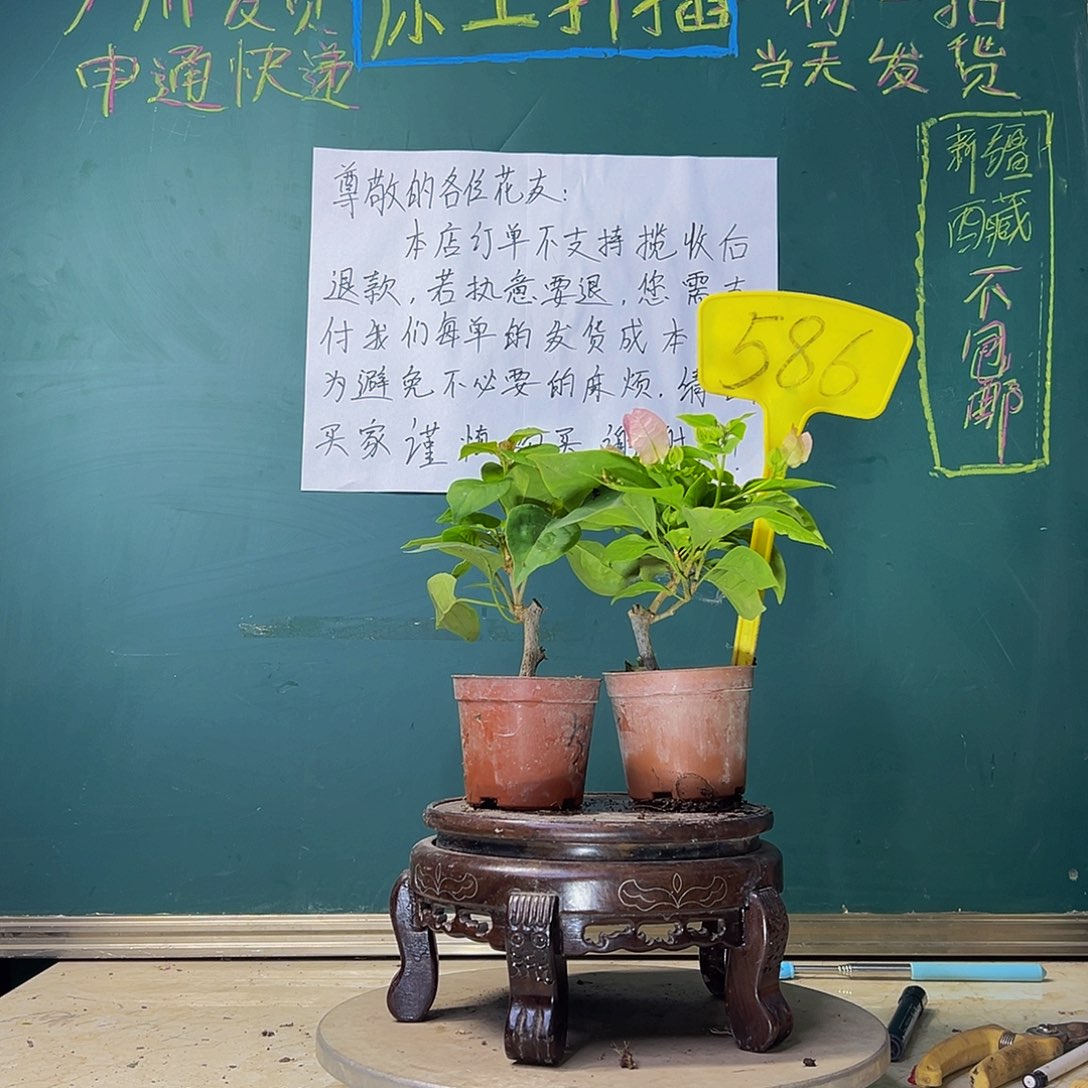 广州发货
原土打插
物一拍
申通快递
当天发货
新疆
西藏
不包邮
尊敬的各位花友:
本店订单不支持揽收后
退款,若执意要退,您需支
付我们每单的发货成本
为避免不必要的麻烦.请
买家谨慎购买 谢
586